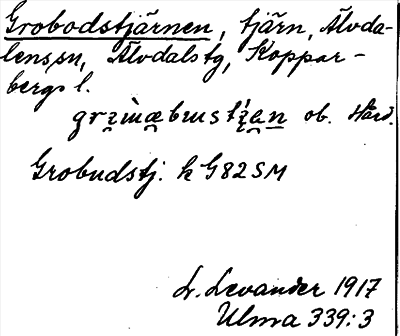 Grobodstjärnen, tjärn, Älvda-
lens sn, Älvdals tg, Koppar-
bergs l.
ob.
Grobudstj. k G82SM
L. Levander 1917
Ulma 339:3